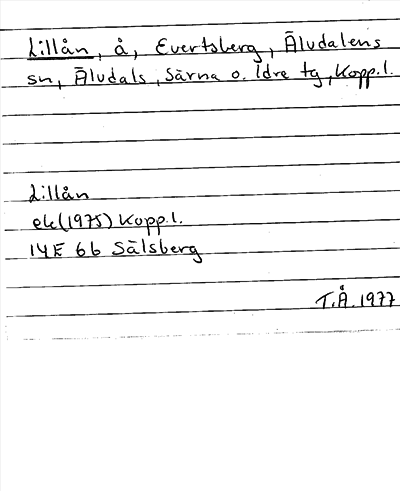 Lillån, å, Evertsberg, Älvdalens
sn, Älvdals, Särna o. Idre tg, Kopp.l.
Lillån
ek (1975) Kopp.l.
14E 6b Sälsberg
T.Å. 1977